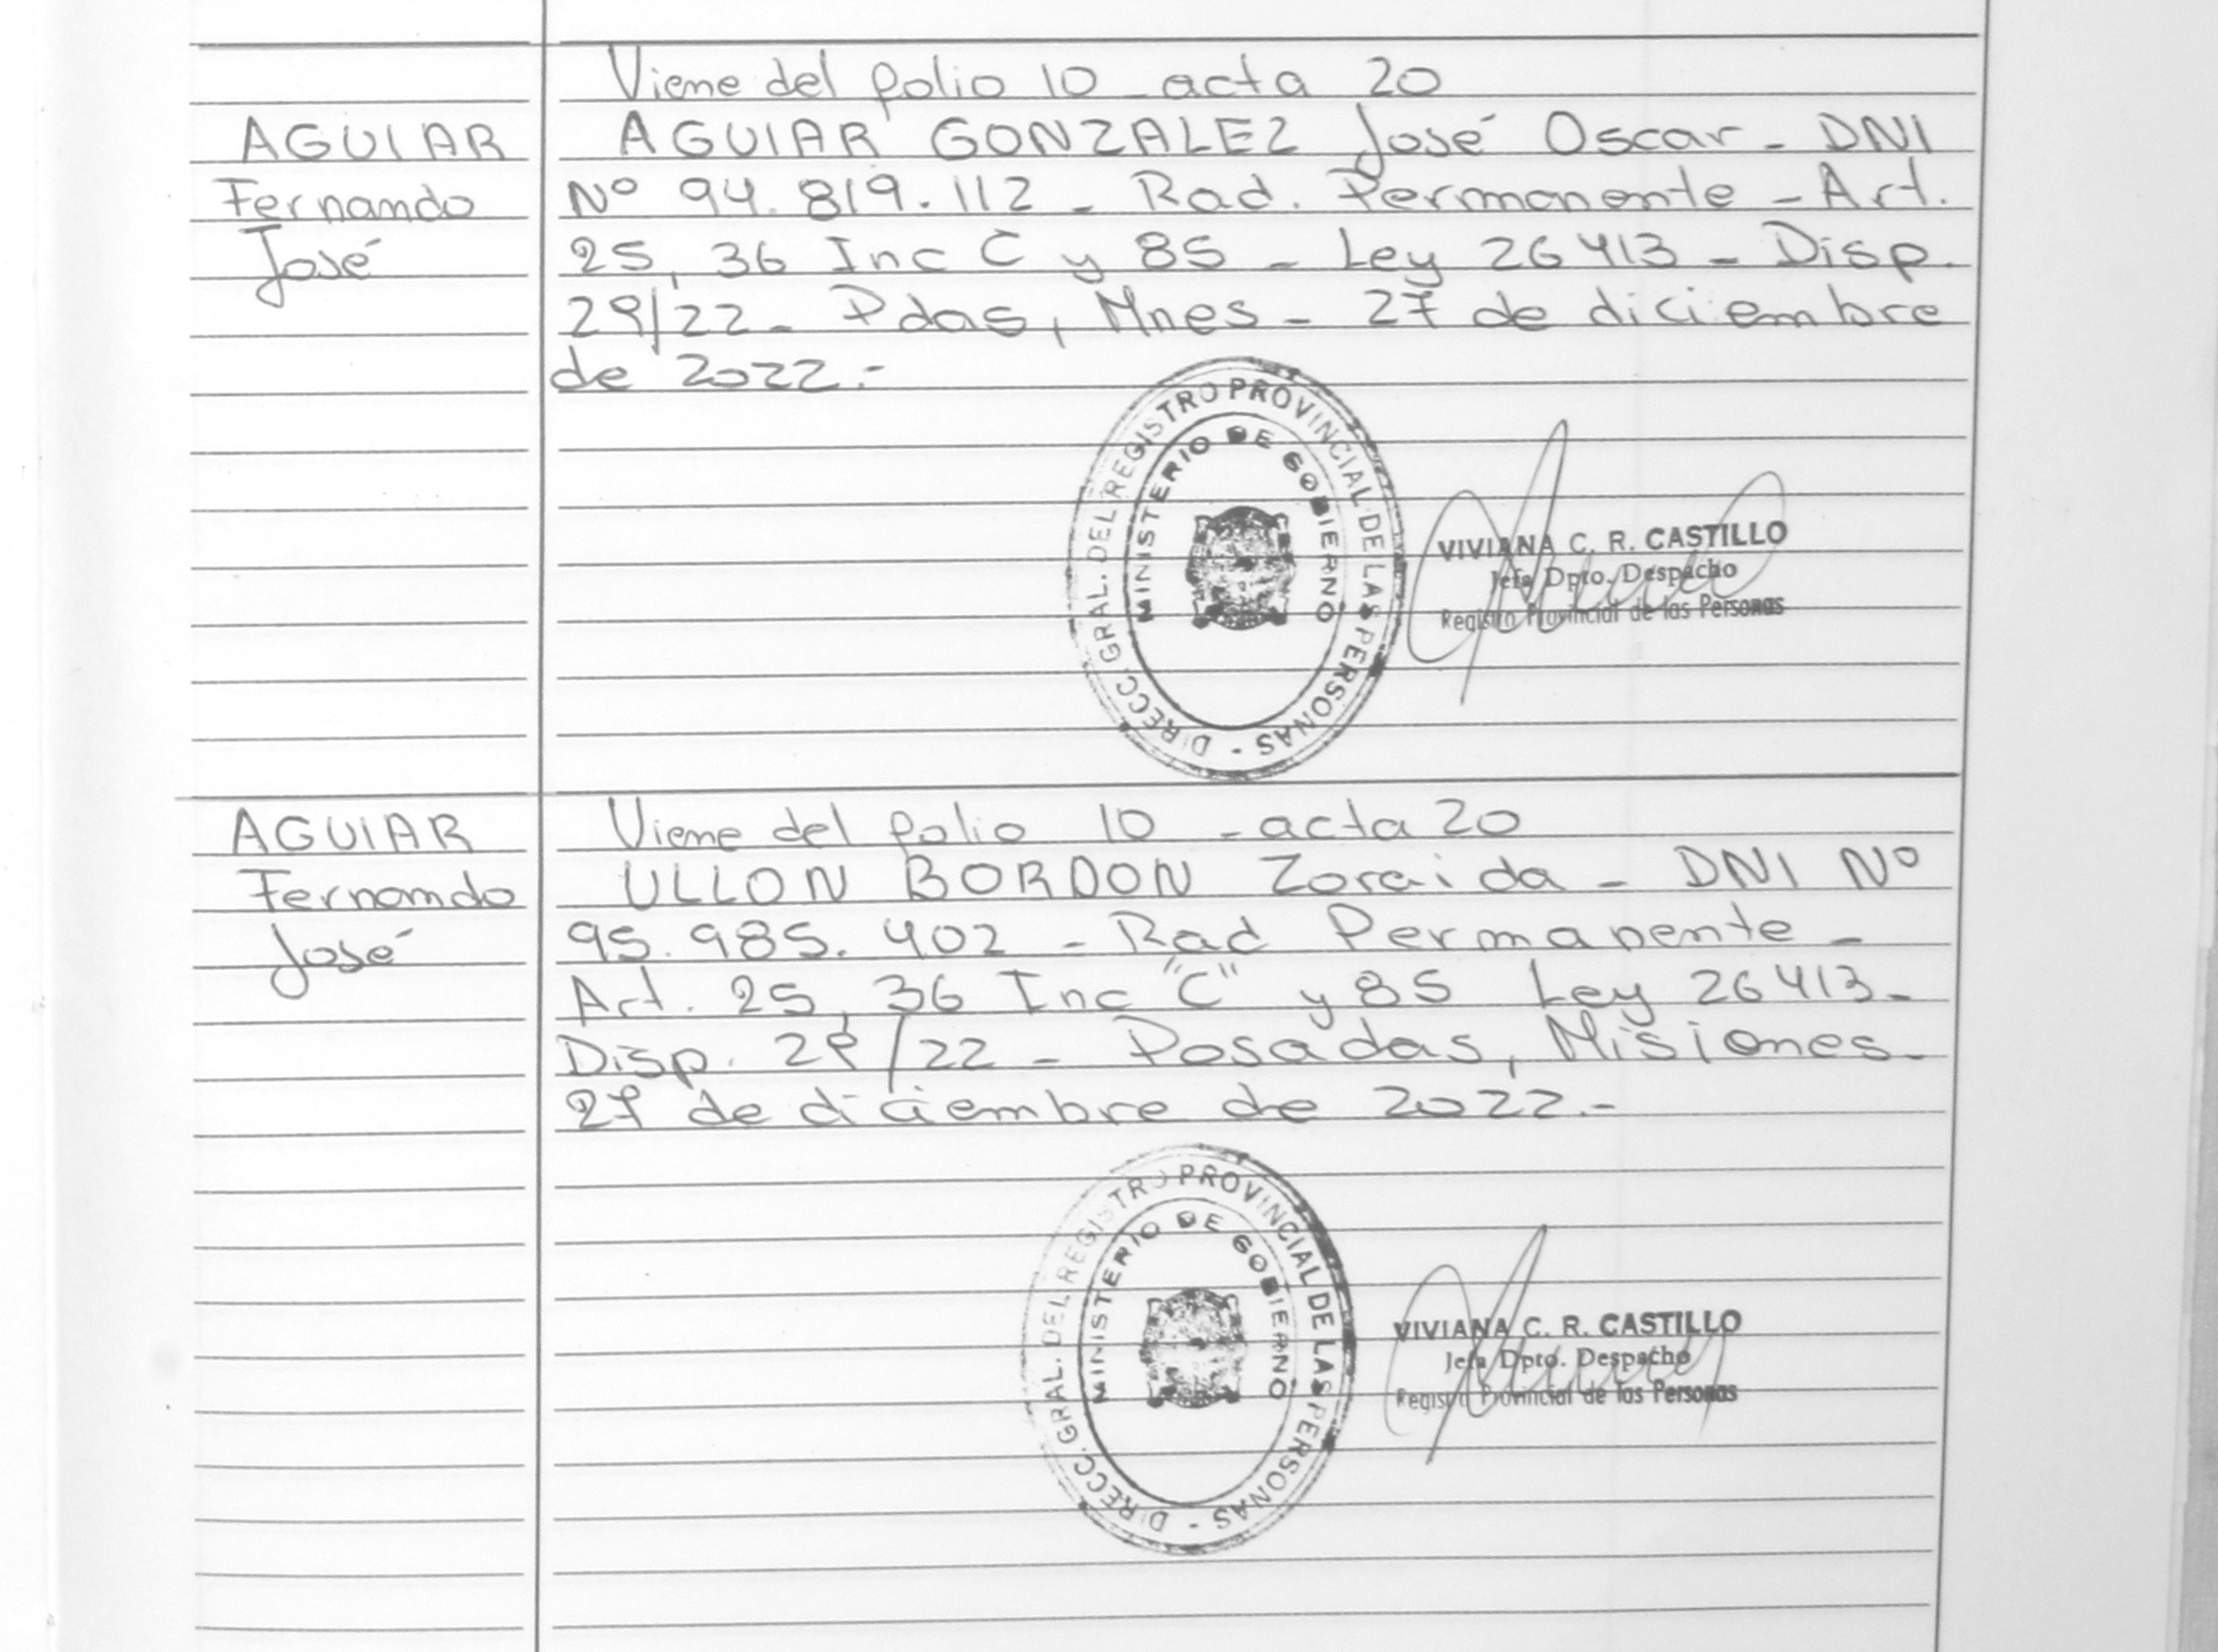 Viene del folio 10 - acta 20
AGUIAR
Fernando
José
AGUIAR GONZALEZ José Oscar - DNI
Nº 94.819.112 - Rad. Permanente - Art.
25, 36 Inc C y 85 - Ley 26413 - Disp.
29/22 - Pdas, Mnes - 27 de diciembre
de 2022.-
DIRECC. GRAL. DEL REGISTRO PROVINCIAL DE LAS PERSONAS -
MINISTERIO DE GOBIERNO
VIVIANA C. R. CASTILLO
Jefa Dpto. Despacho
Registro Provincial de las Personas
AGUIAR
Fernando
José
Viene del folio 10 - acta 20
ULLON BORDON Zoraida - DNI Nº
95.985.402 - Rad Permanente -
Art. 25, 36 Inc "C" y 85 Ley 26413 -
Disp. 29/22 - Posadas, Misiones -
27 de diciembre de 2022.-
DIRECC. GRAL. DEL REGISTRO PROVINCIAL DE LAS PERSONAS -
MINISTERIO DE GOBIERNO
VIVIANA C. R. CASTILLO
Jefa Dpto. Despacho
Registro Provincial de las Personas